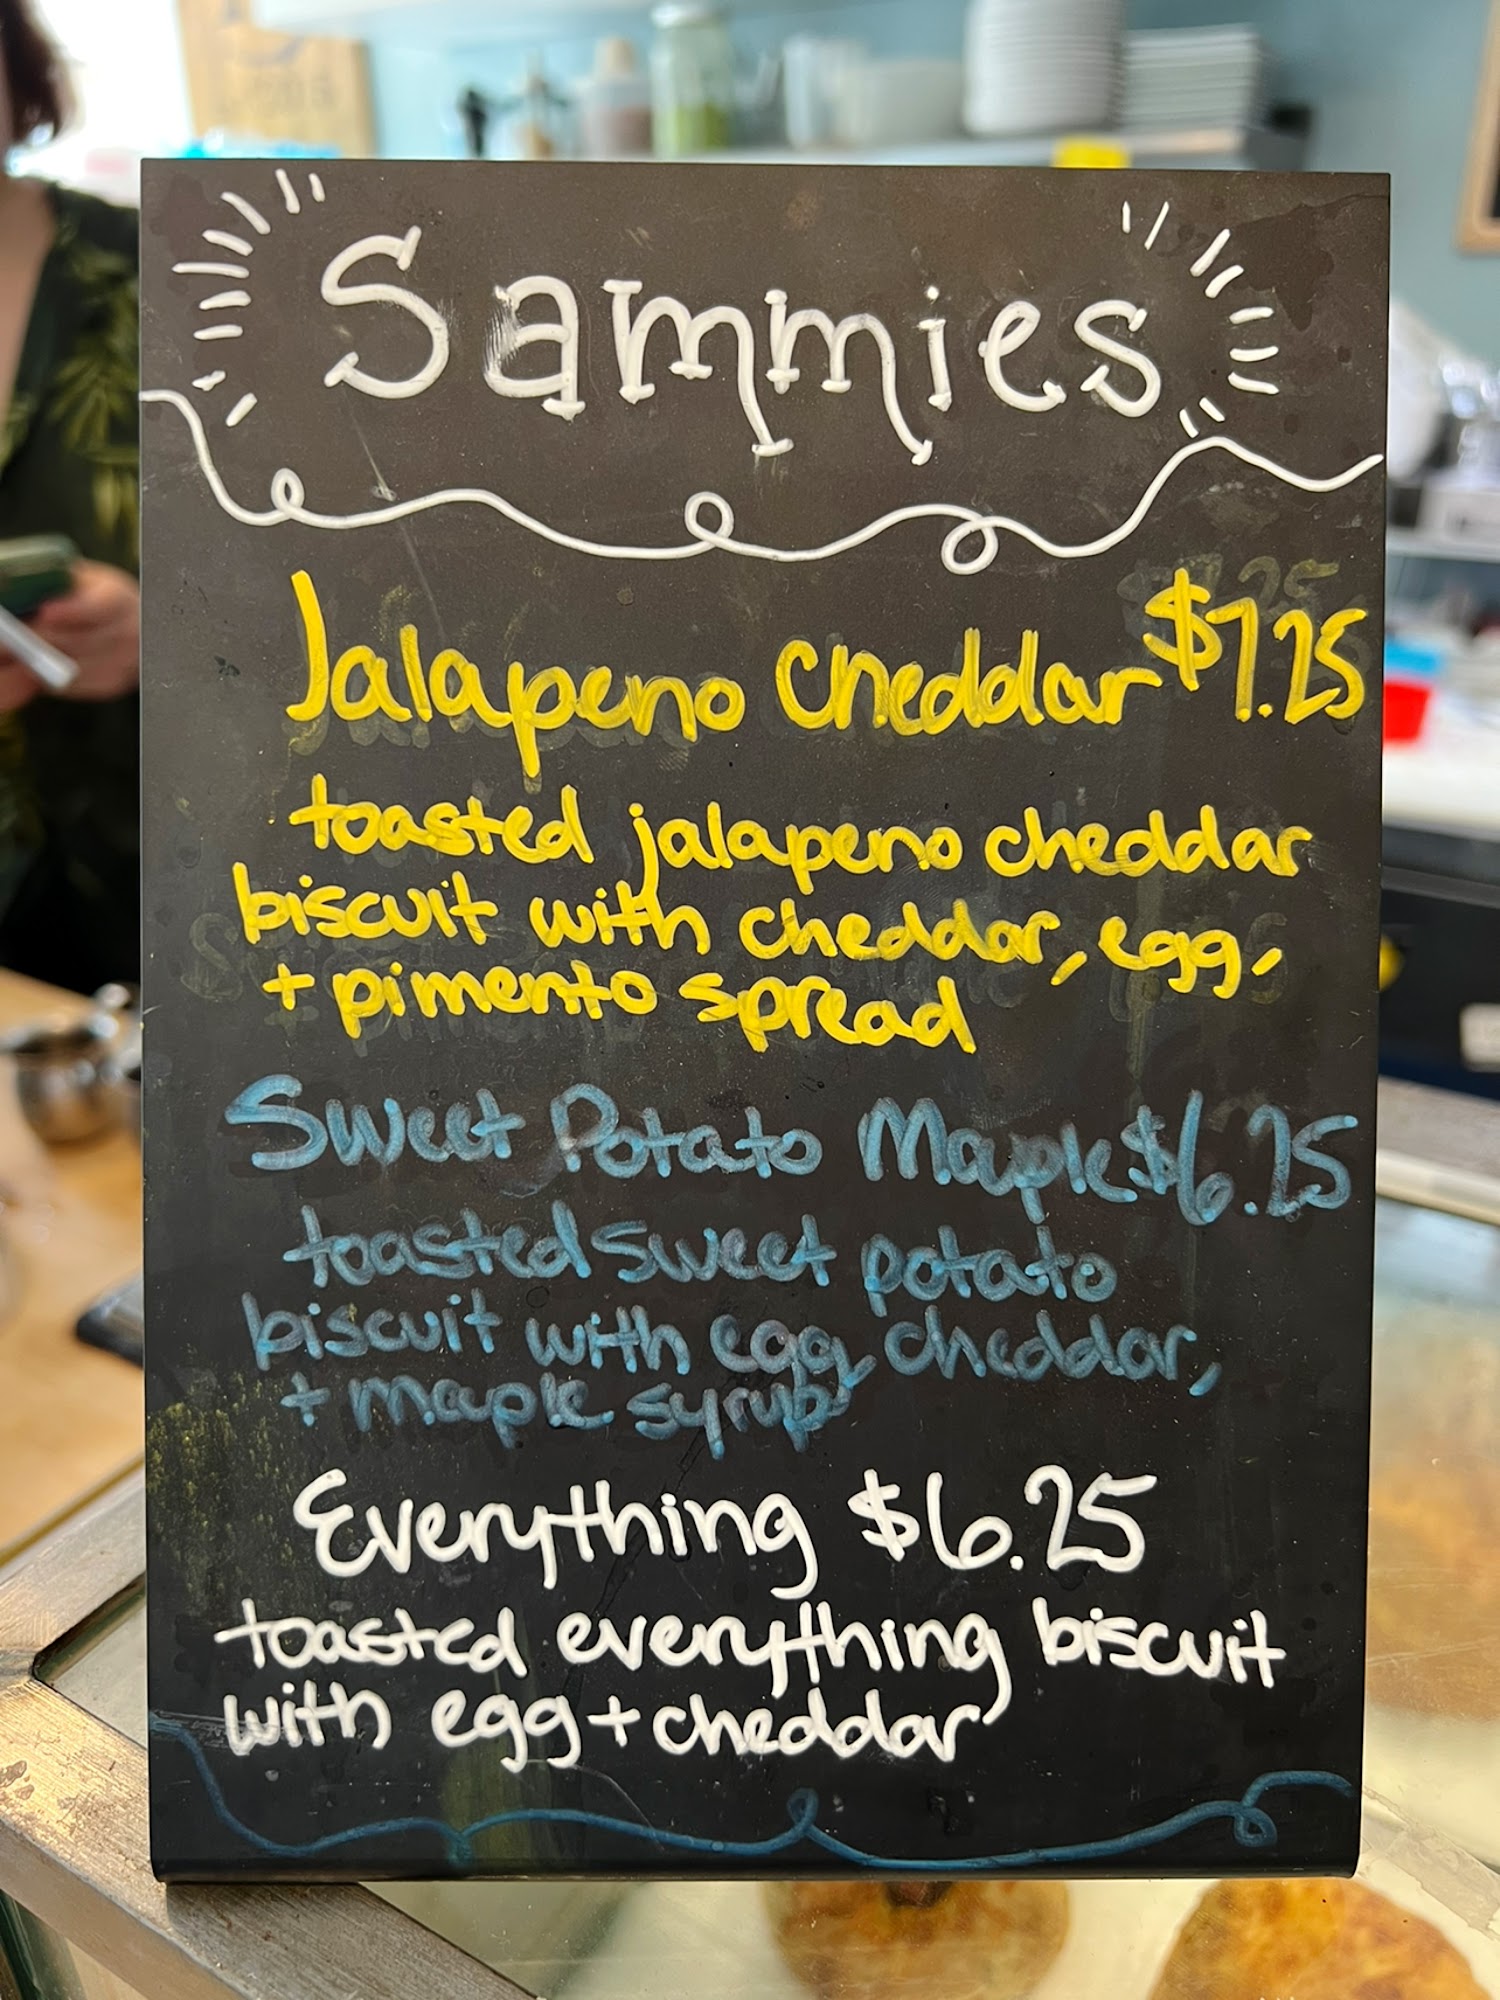 Sammies
Jalapeno Cheddar $7.25
toasted jalapeno cheddar
biscuit with cheddar, egg,
+ pimento spread
Sweet Potato Maple $6.25
toasted sweet potato
biscuit with egg, cheddar,
+ maple syrup
Everything $6.25
toasted everything biscuit
with egg + cheddar